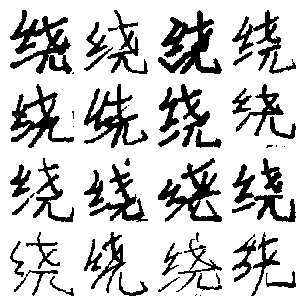 绕绕绕绕
绕绕绕绕
绕绕绕绕
绕绕绕绕